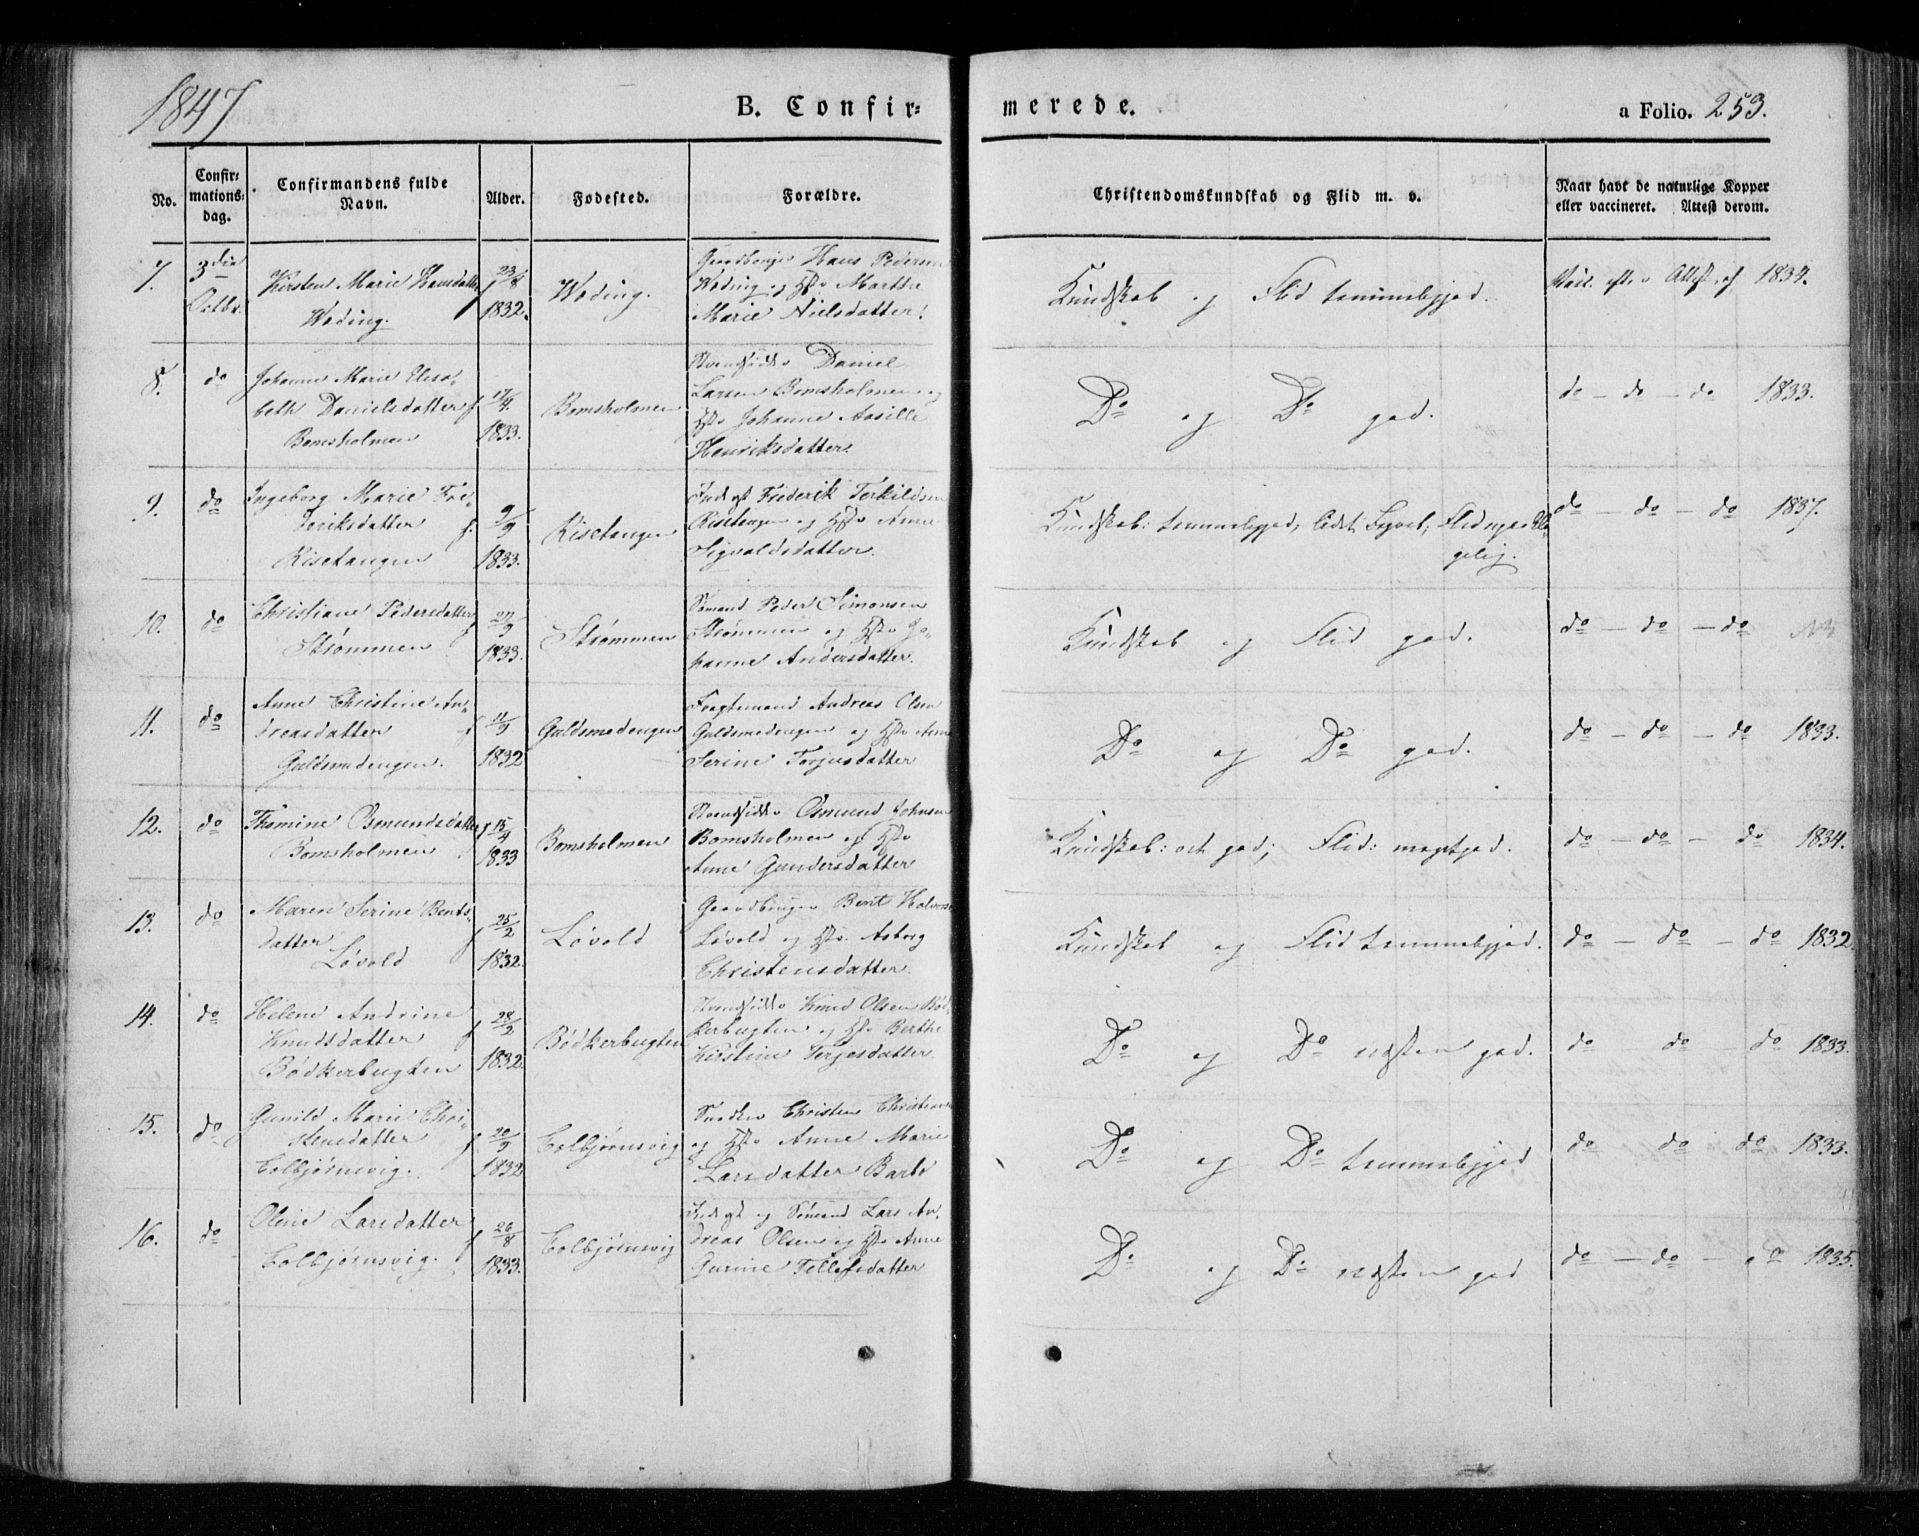 1847
B. Confir=
merede.
a Folio. 253.
No.
Confir=
mations=
dag.
Confirmandens fulde
Navn.
Alder.
Fødested.
Forældre.
Christendomskundskab og Flid m. v.
Naar havt de naturlige Kopper
eller vaccineret. Attest derom.
7.
3die
Octbr.
Kirsten Marie Hansdatter
Woding.
f
23/8
1832.
Woding.
Gaardbruger Hans Pedersen
Woding og Hstr Marthe
Marie Nielsdatter.
Kundskab og Flid temmeliggod.
Vacc. eft. Attest. af 1834.
8.
do
Johanne Marie Elisa-
beth Danielsdatter
Bomsholmen
f
17/4
1833.
Bomsholmen
Strandsidder Daniel
Larsen Bomsholmen og
Hstr Johanne Aasille
Henriksdatter.
Do og Do god.
do - do - do 1833.
9.
do
Ingeborg Marie Fre-
deriksdatter
Risetangen
f.
9/9
1833.
Risetangen
Frederik Terkildsen
Risetangen og Hstr Anne
Sigvaldsdatter.
Kundskab: temmeliggod; Flid
gelig.
do - do - do 1837.
10.
do
Christiane Pedersdatter
Strømmen
f
27/9
1833.
Strømmen
Sømand Peder Simonsen
Strømmen og Hstr Jo-
hanne Andersdatter.
Kundskab og Flid god.
do - do - do
11.
do
Anne Christine An-
dreasdatter
Guldsmedengen.
f
11/9
1832
Guldsmedengen
Fragtemand Andreas Olsen
Guldsmedengen og Hstr Anne
Serine Torjusdatter
Do og Do god.
do - do - do 1833.
12.
do
Thomine Osmundsdatter
Bomsholmen
f
15/4
1833
Bomsholmen
Strandsidder Osmund Johnsen
Bomsholmen og Hstr
Anne Gundersdatter
Kundskab: god; Flid: megetgod.
do - do - do 1834.
13.
do
Maren Serine Bents-
datter
Løvold
f
25/2
1832.
Løvold
Gaardbruger Bent Halvorsen
Løvold og Hstr. Asborg
Christensdatter.
Kundskab og Flid temmeliggod.
do - do - do 1832.
14.
do
Helene Andrine
Knudsdatter
Bødkerbugten
f
28/2
1832.
Bødkerbugten
Strandsidder Knud Olsen Bød-
kerbugten og Hstr Berthe
Kirstine Terjesdatter
Do og Do næsten god.
do do do 1833.
15.
do
Gunild Marie Chri-
stensdatter
Colbjørnsvig.
f
20/9
1832
Colbjørnsvig
Snedker Christen Christensen
og Hstr Anne Marie
Larsdatter Barbo
Do og Do temmeliggod
do do do 1833.
16.
do
Oline Larsdatter
Colbjørnsvig.
f
26/8
1833.
Colbjørnsvig
og Sømand Lars An-
dreas Olsen og Hstr Anne
Gurine Tellefsdatter
Do og Do næsten god
do - do - do 1835.